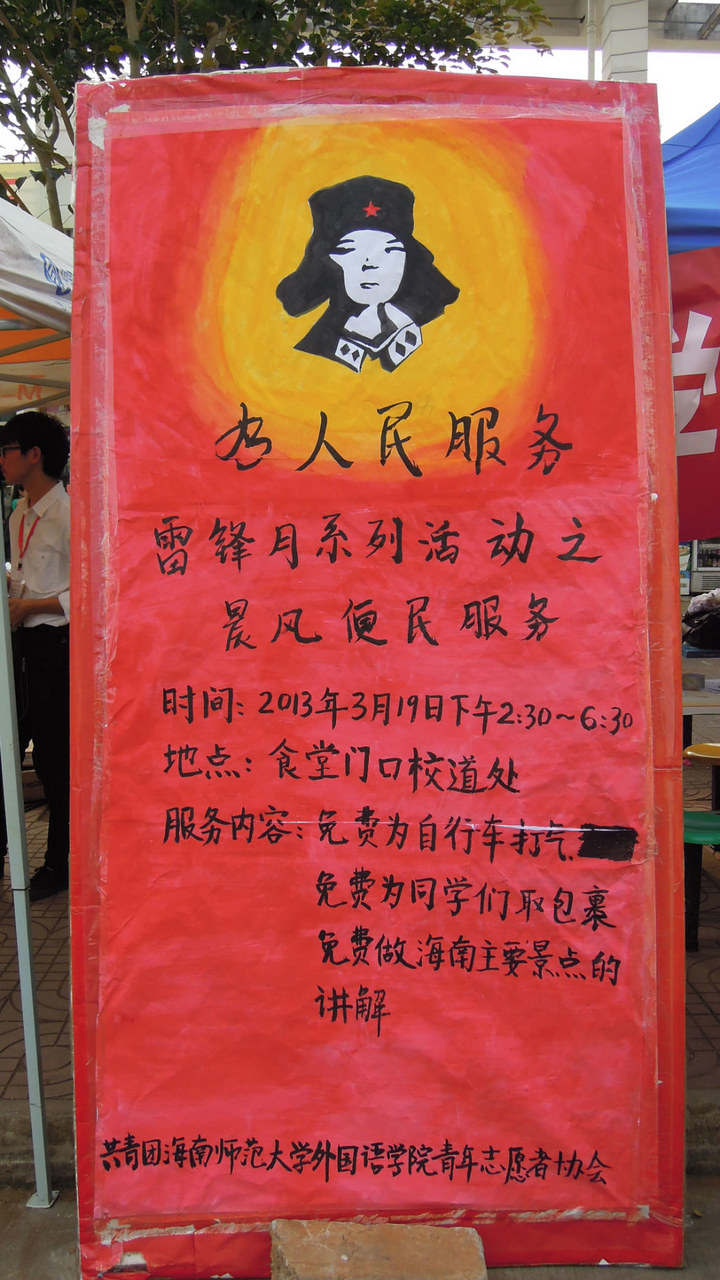 为人民服务
雷锋月系列活动之
晨风便民服务
时间：2013年3月19日下午2:30～6:30
地点：食堂门口校道处
服务内容：免费为自行车打气、
免费为同学们取包裹
免费做海南主要景点的
讲解
共青团海南师范大学外国语学院青年志愿者协会